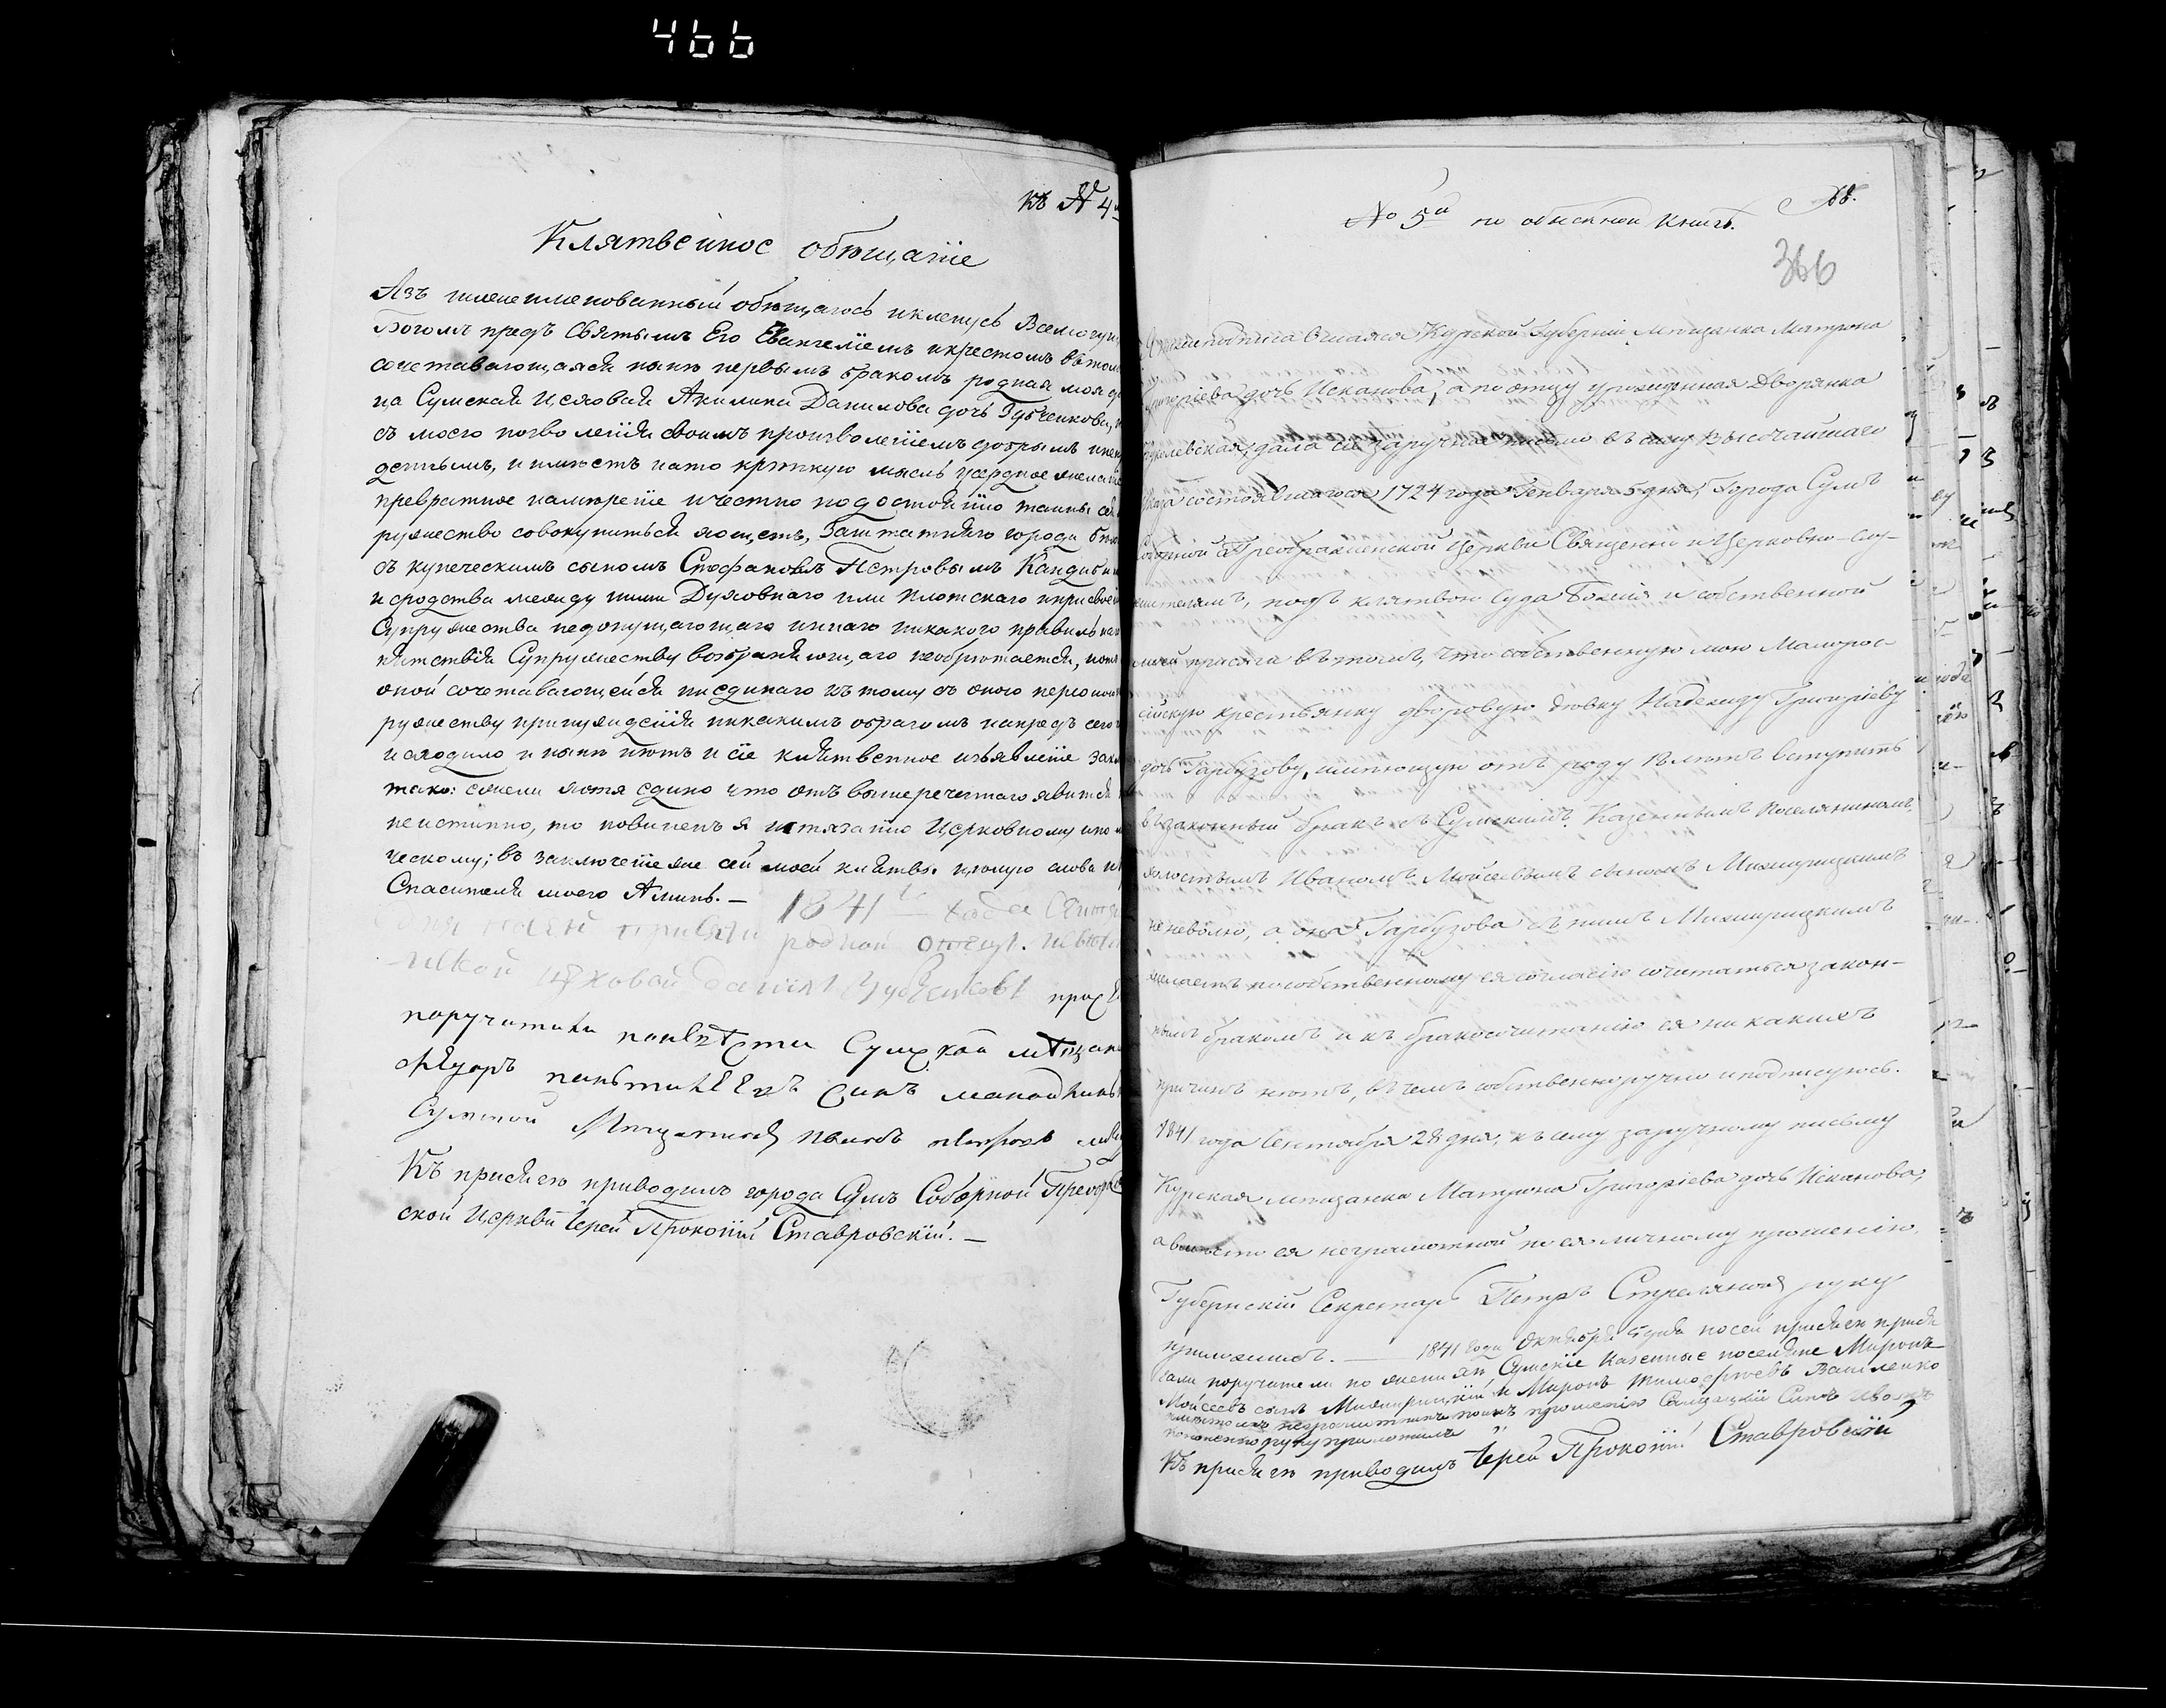 466
къ № 4
Клятвенное обѣщаніе
Азъ нижеименованный обѣщаюсь и кленусь Всемогущ
Богомъ предъ Святымъ Его Евангеліемъ и крестомъ въ том
сочетавающаяся нынѣ первымъ бракомъ родная моя д
ца Сумская Цеховая Акилина Данилова дочь Губченкова,
съ моего позволенія своимъ произволеніемъ добрымъ и не
деннымъ, и имѣетъ на то крѣпкую мысль усердное желаніе
превратное намѣреніе и честно по достоинію тайны се
ружество совокупиться хощетъ, Заштатнаго города
съ купеческимъ сыномъ Стефаномъ Петровымъ
и сродства между ними Духовнаго или плотскаго и присвое
Супружества недопущающаго иннаго никакого правильна
пятствія Супружеству возбраняющаго необрѣтается,
оной сочетавающейся ни единаго къ тому съ оною персоною
ружеству принужденія никакимъ образомъ напредъ сего
исходило и нынѣ нѣтъ и сіе клятвенное изъявленіе зак
тако: ежели хотя едино что отъ вышереченнаго явится
неистинно, то повиненъ я истязанію Церковному и по
ческому; въ заключеніе же сей моей клятвы цѣлую слова и
Спасителя моего Аминь. —
1841 года Сентя
родной отецъ
цеховой Данііл Губченковъ
поручители Сумской мѣщан
синъ
Сумской Мѣщанинъ Иванъ Петровъ
Къ присягѣ приводилъ города Сумъ Соборной Преображ
ской Церкви Іерей Прокопій Ставровскій. —
№ 5й по обыскной книгѣ.
366
Нижеподписавшаяся Курской Губерніи Мѣщанка Матрона
Григоріева дочь Исканова, а по отцу урожденная Дворянка
дала сіе заручное письмо въ силу Высочайшаго
Указа состоявшагося 1724 года Генваря 5 дня, Города Сумъ
Соборной Преображенской Церкви Священно и Церковно-слу-
жителямъ, подъ клятвою Суда Божія и собственной
моей присяги въ томъ, что собственную мою Малорос-
сійскую крестьянку дворовую дѣвку Надежду Григоріеву
дочь Гарбузову, имѣющую отъ роду 18 лѣтъ вступить
въ законный бракъ съ Сумскимъ Казеннымъ поселяниномъ
холостымъ Иваномъ Мойсеевымъ сыномъ Мижирицкимъ
не неволю, а она Гарбузова съ нимъ Мижирицкимъ
желаетъ по собственному ея согласію сочитаться закон-
нымъ бракомъ и къ бракосочитанію ея никакихъ
причинъ нѣтъ, въ чемъ собственноручно и подписуюсь.
1841 года Сентября 28 дня, къ сему заручному письму
Курская мѣщанка Матрона Григоріева дочь Исканова,
а вмѣсто ея неграмотной по ея личному прошенію,
Губернскій Секретарь Петръ Стреляной руку
приложилъ. — 1841 года Октября 5 дня по сей присягѣ прися
гали поручители по женихѣ Сумскіе Казенные поселяне Миронъ
Мойсеевъ сынъ Мижирицкій и Миронъ Тимофѣевъ Василенко
вмѣсто ихъ неграмотныхъ по ихъ прошенію Синъ Иванъ
руку приложилъ
Къ присягѣ приводилъ Іерей Прокопій Ставровскій